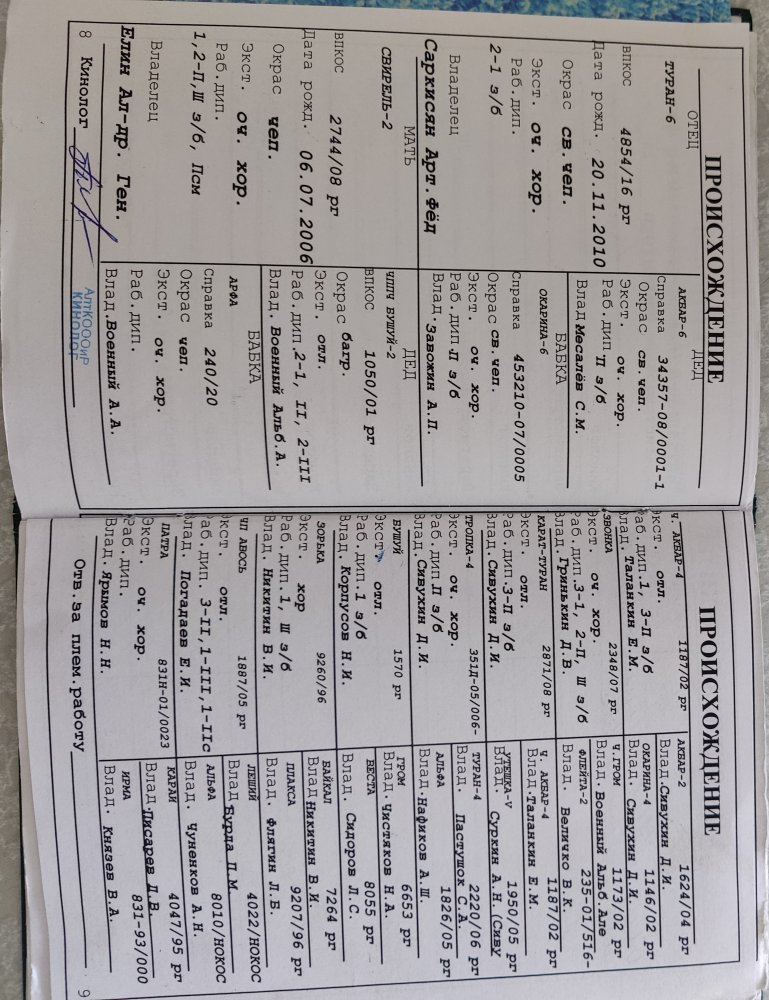 ПРОИСХОЖДЕНИЕ
ОТЕЦ
ТУРАН-6
ВПКОС 4854/16 рг
Дата рожд. 20.11.2010
Окрас св.чеп.
Экст. оч. хор.
Раб.дип.
2-1 з/б
Владелец
Саркисян Арт.Фёд
МАТЬ
СВИРЕЛЬ-2
ВПКОС 2744/08 рг
Дата рожд. 06.07.2006
Окрас чеп.
Экст. оч. хор.
Раб.дип.
1,2-П,Ш з/б, Псм
Владелец
Елин Ал-др. Ген.
8 Кинолог
АлтКОООиР
КИНОЛОГ
ДЕД
АКВАР-6
Справка 34357-08/0001-1
Окрас св.чеп.
Экст. оч. хор.
Раб.дип П з/б
Влад Месалёв С.М.
БАБКА
ОКАРИНА-6
Справка 453210-07/0005
Окрас св.чеп.
Экст. оч. хор.
Раб.дип П з/б
Влад.Завожин А.П.
ДЕД
ЧППЧ ВУШУЙ-2
ВПКОС 1050/01 рг
Окрас багр.
Экст. отл.
Раб.дип.2-1, II, 2-III
Влад. Военный Альб.А.
БАБКА
АРФА
Справка 240/20
Окрас чеп.
Экст. оч. хор.
Раб.дип.
Влад.Военный А.А.
ПРОИСХОЖДЕНИЕ
Ч. АКВАР-4 1187/02 рг
Экст. отл.
Раб.дип.1, 3-П з/б
Влад. Таланкин Е.М.
ЗВОНКА 2348/07 рг
Экст. оч. хор.
Раб.дип.3-1, 2-П, Ш з/б
Влад. Гринькин Д.В.
КАРАТ-ТУРАН 2871/08 рг
Экст. отл.
Раб.дип.3-П з/б
Влад. Сивухин Д.И.
ТРОПКА-4 351Д-05/006-
Экст. оч. хор.
Раб.дип.П з/б
Влад.Сивухин Д.И.
ВУШУЙ 1570 рг
Экст. отл.
Раб.дип.1 з/б
Влад. Корпусов Н.И.
ЗОРЬКА 9260/96
Экст. хор
Раб.дип.1, Ш з/б
Влад. Никитин В.И.
ЧП АВОСЬ 1887/05 рг
Экст. отл.
Раб.дип. 3-II,1-III,1-IIс
Влад. Погадаев Е.И.
ПАТРА 831Н-01/0023
Экст. оч. хор.
Раб.дип.
Влад.Ярымов Н.Н.
АКВАР-2 1624/04 рг
Влад.Сивухин Д.И.
ОКАРИНА-4 1146/02 рг
Влад. Сивухин Д.И.
Ч.ГРОМ 1173/02 рг
Влад. Военный Альб.Але
ФЛЕЙТА-2 235-01/516-
Влад. Величко В.К.
Ч. АКВАР-4 1187/02 рг
Влад.Таланкин Е.М.
УТЕШКА-V 1950/05 рг
Влад. Суркин А.Н.(Сиву
ТУРАН-4 2220/06 рг
Влад. Пастушок С.А.
АЛЬФА 1826/05 рг
Влад.Нафиков А.Ш.
ГРОМ 6653 рг
Влад.Чистяков Н.А.
ВЕСТА 8055 рг
Влад. Сидоров Л.С.
БАЙКАЛ 7264 рг
Влад Никитин В.И.
ПЛАКСА 9207/96 рг
Влад. Флягин Л.В.
ЛЕШИЙ 4022/НОКОС
Влад Бурда П.М.
АЛЬФА 8010/НОКОС
Влад. Чуненков А.Н.
КАРАЙ 4047/95 рг
Влад.Писарев Л.В.
ИРМА 831-93/000
Влад. Князев В.А.
Отв.за плем.работу
9